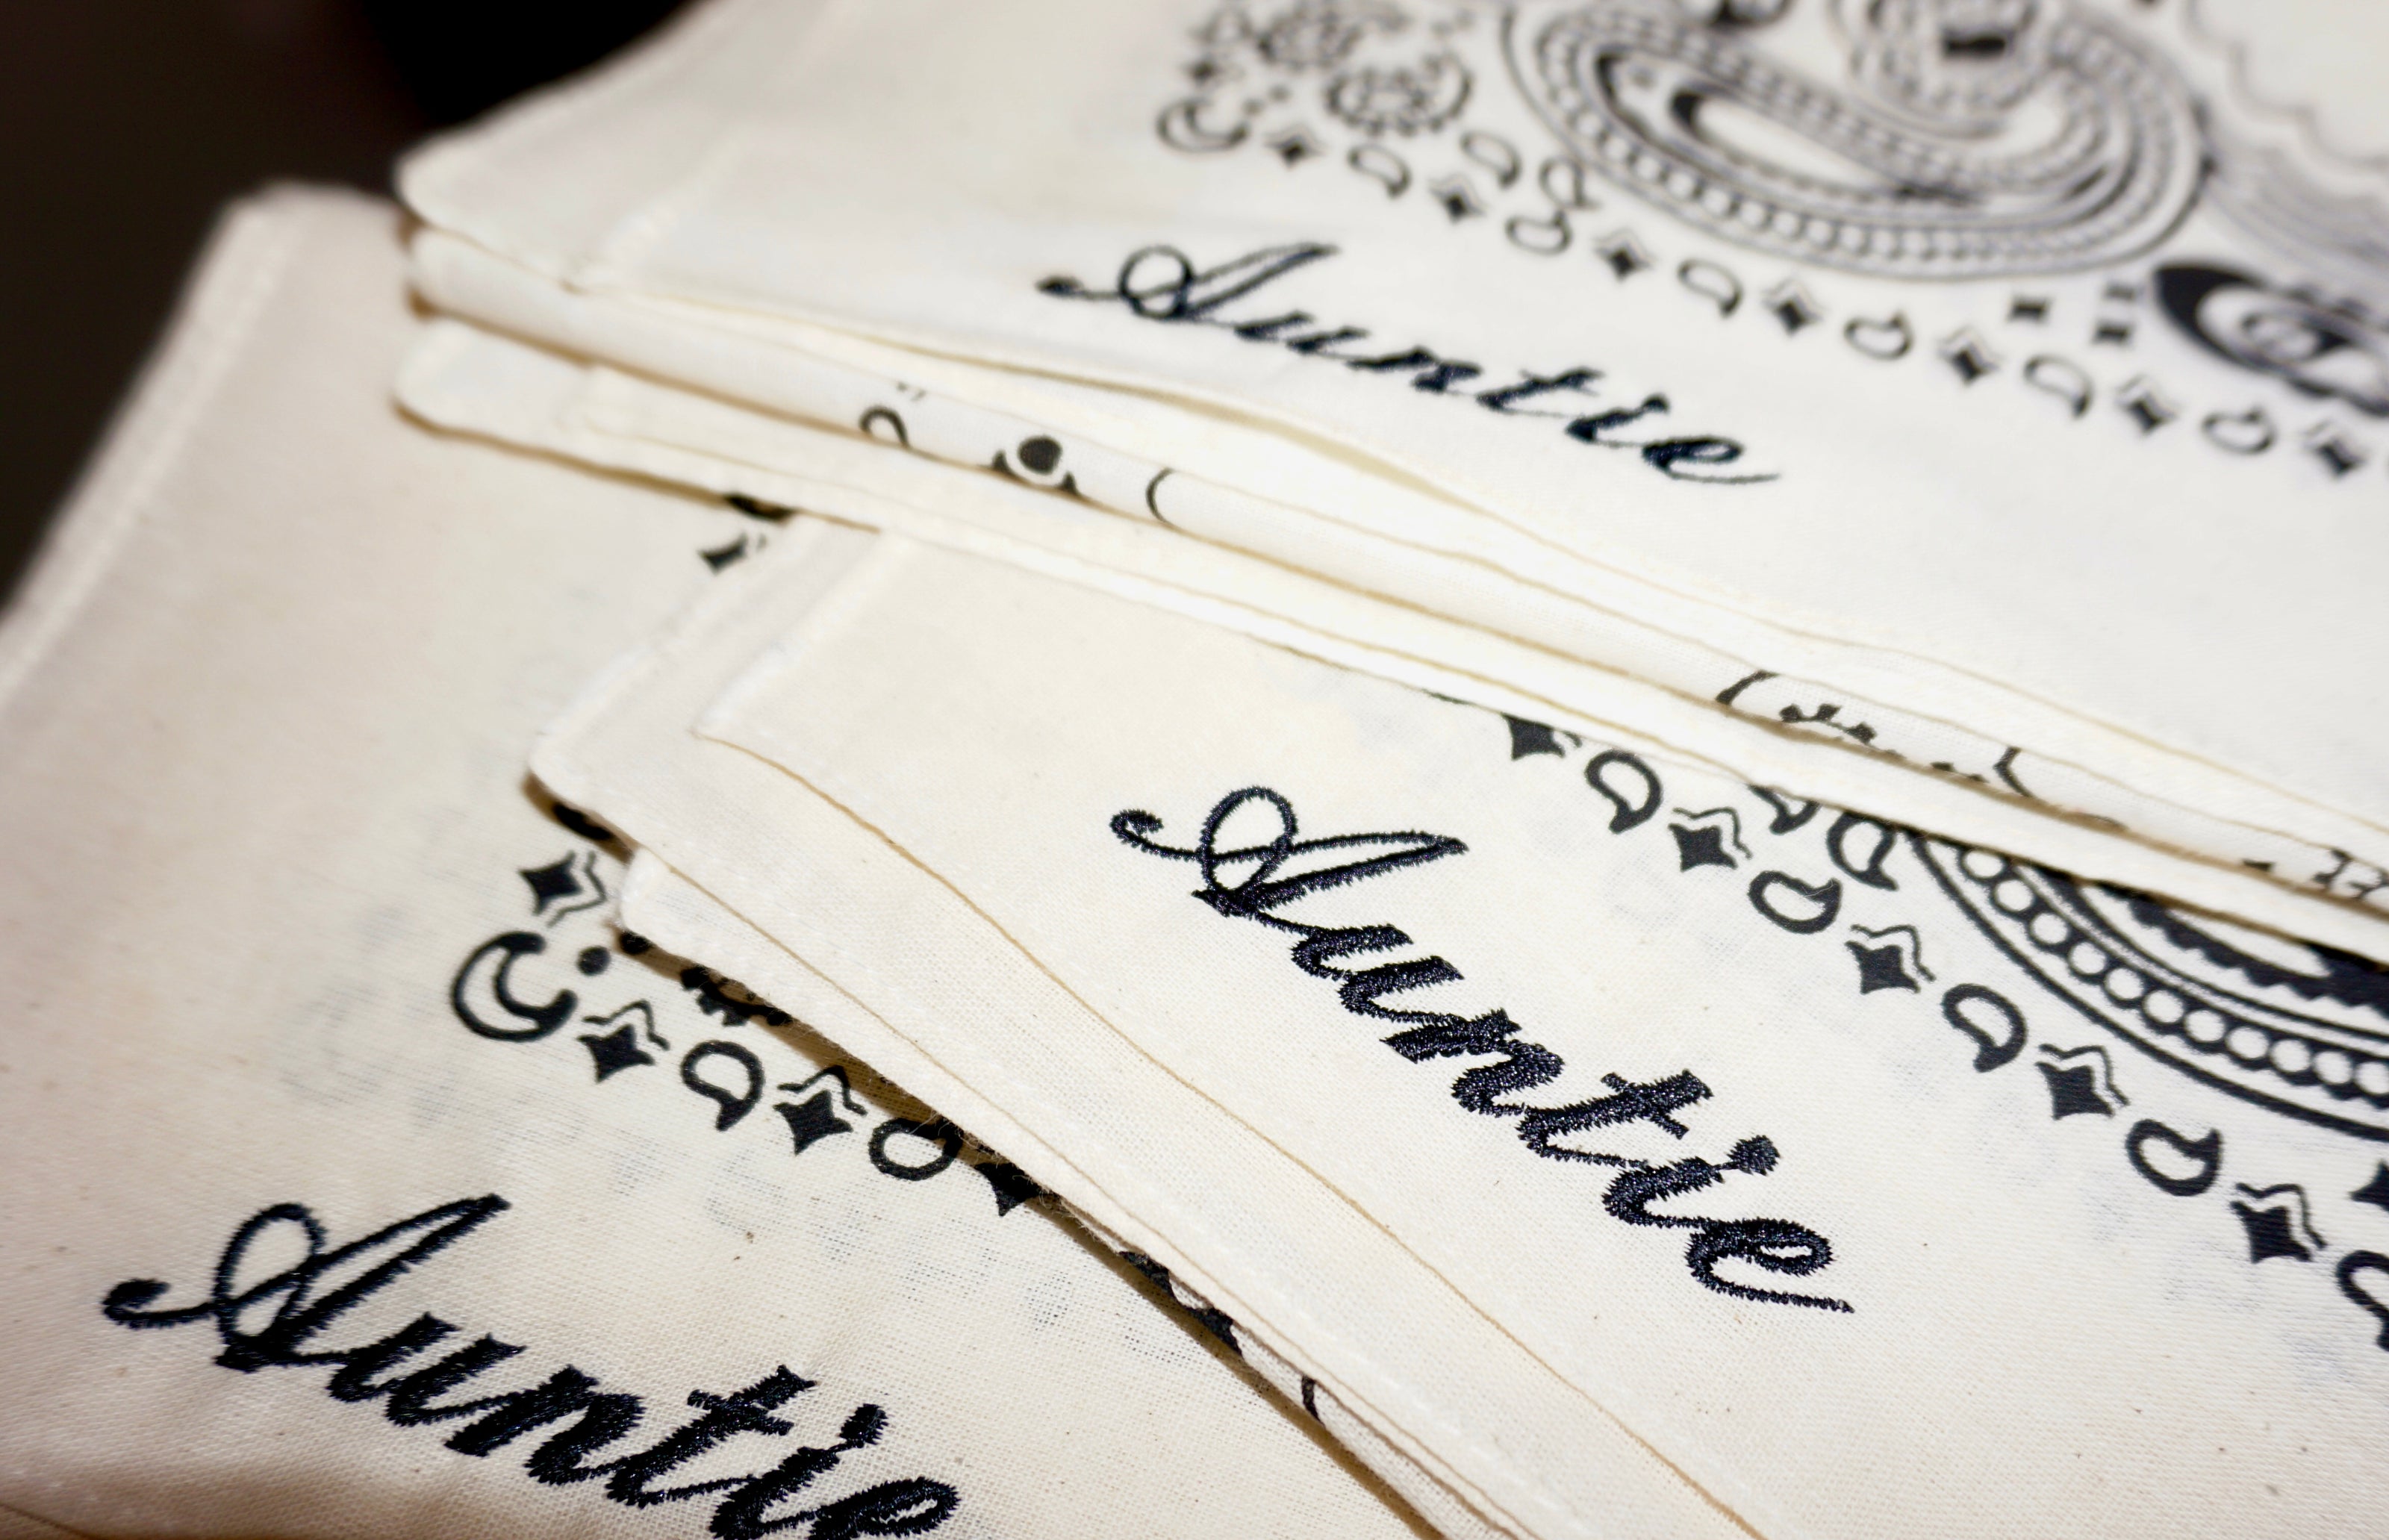 Auntie
Auntie
Auntie